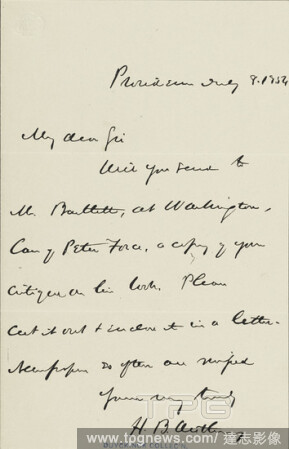 Providence July 8. 1854
My dear Sir
Will you send to
Mr. Bartlett, at Washington,
Care of Peter Force, a copy of your
Citizen on his book. Please
cut it out & enclose it in a letter.
Newspapers so often are
Yours very truly
H. B.
TPG
www.tpgnews.com / 達志影像